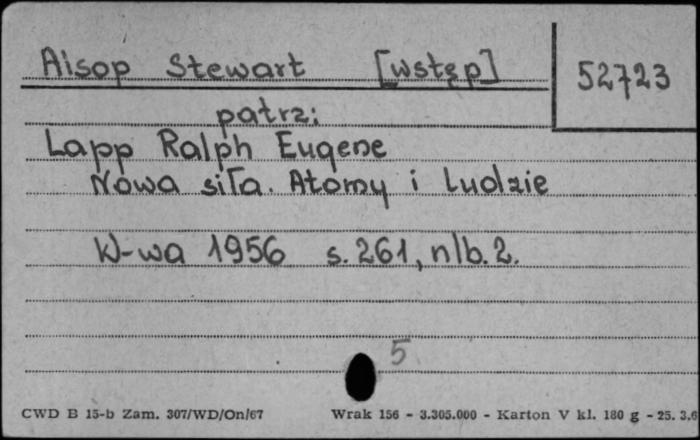 Aisop Stewart [wstęp]
52723
patrz:
Lapp Ralph Eugene
Nowa siła. Atomy i ludzie
W-wa 1956 s. 261, nlb. 2.
5
CWD B 15-b Zam. 307/WD/On/67 Wrak 156 - 3.305.000 - Karton V kl. 180 g - 25. 3.6